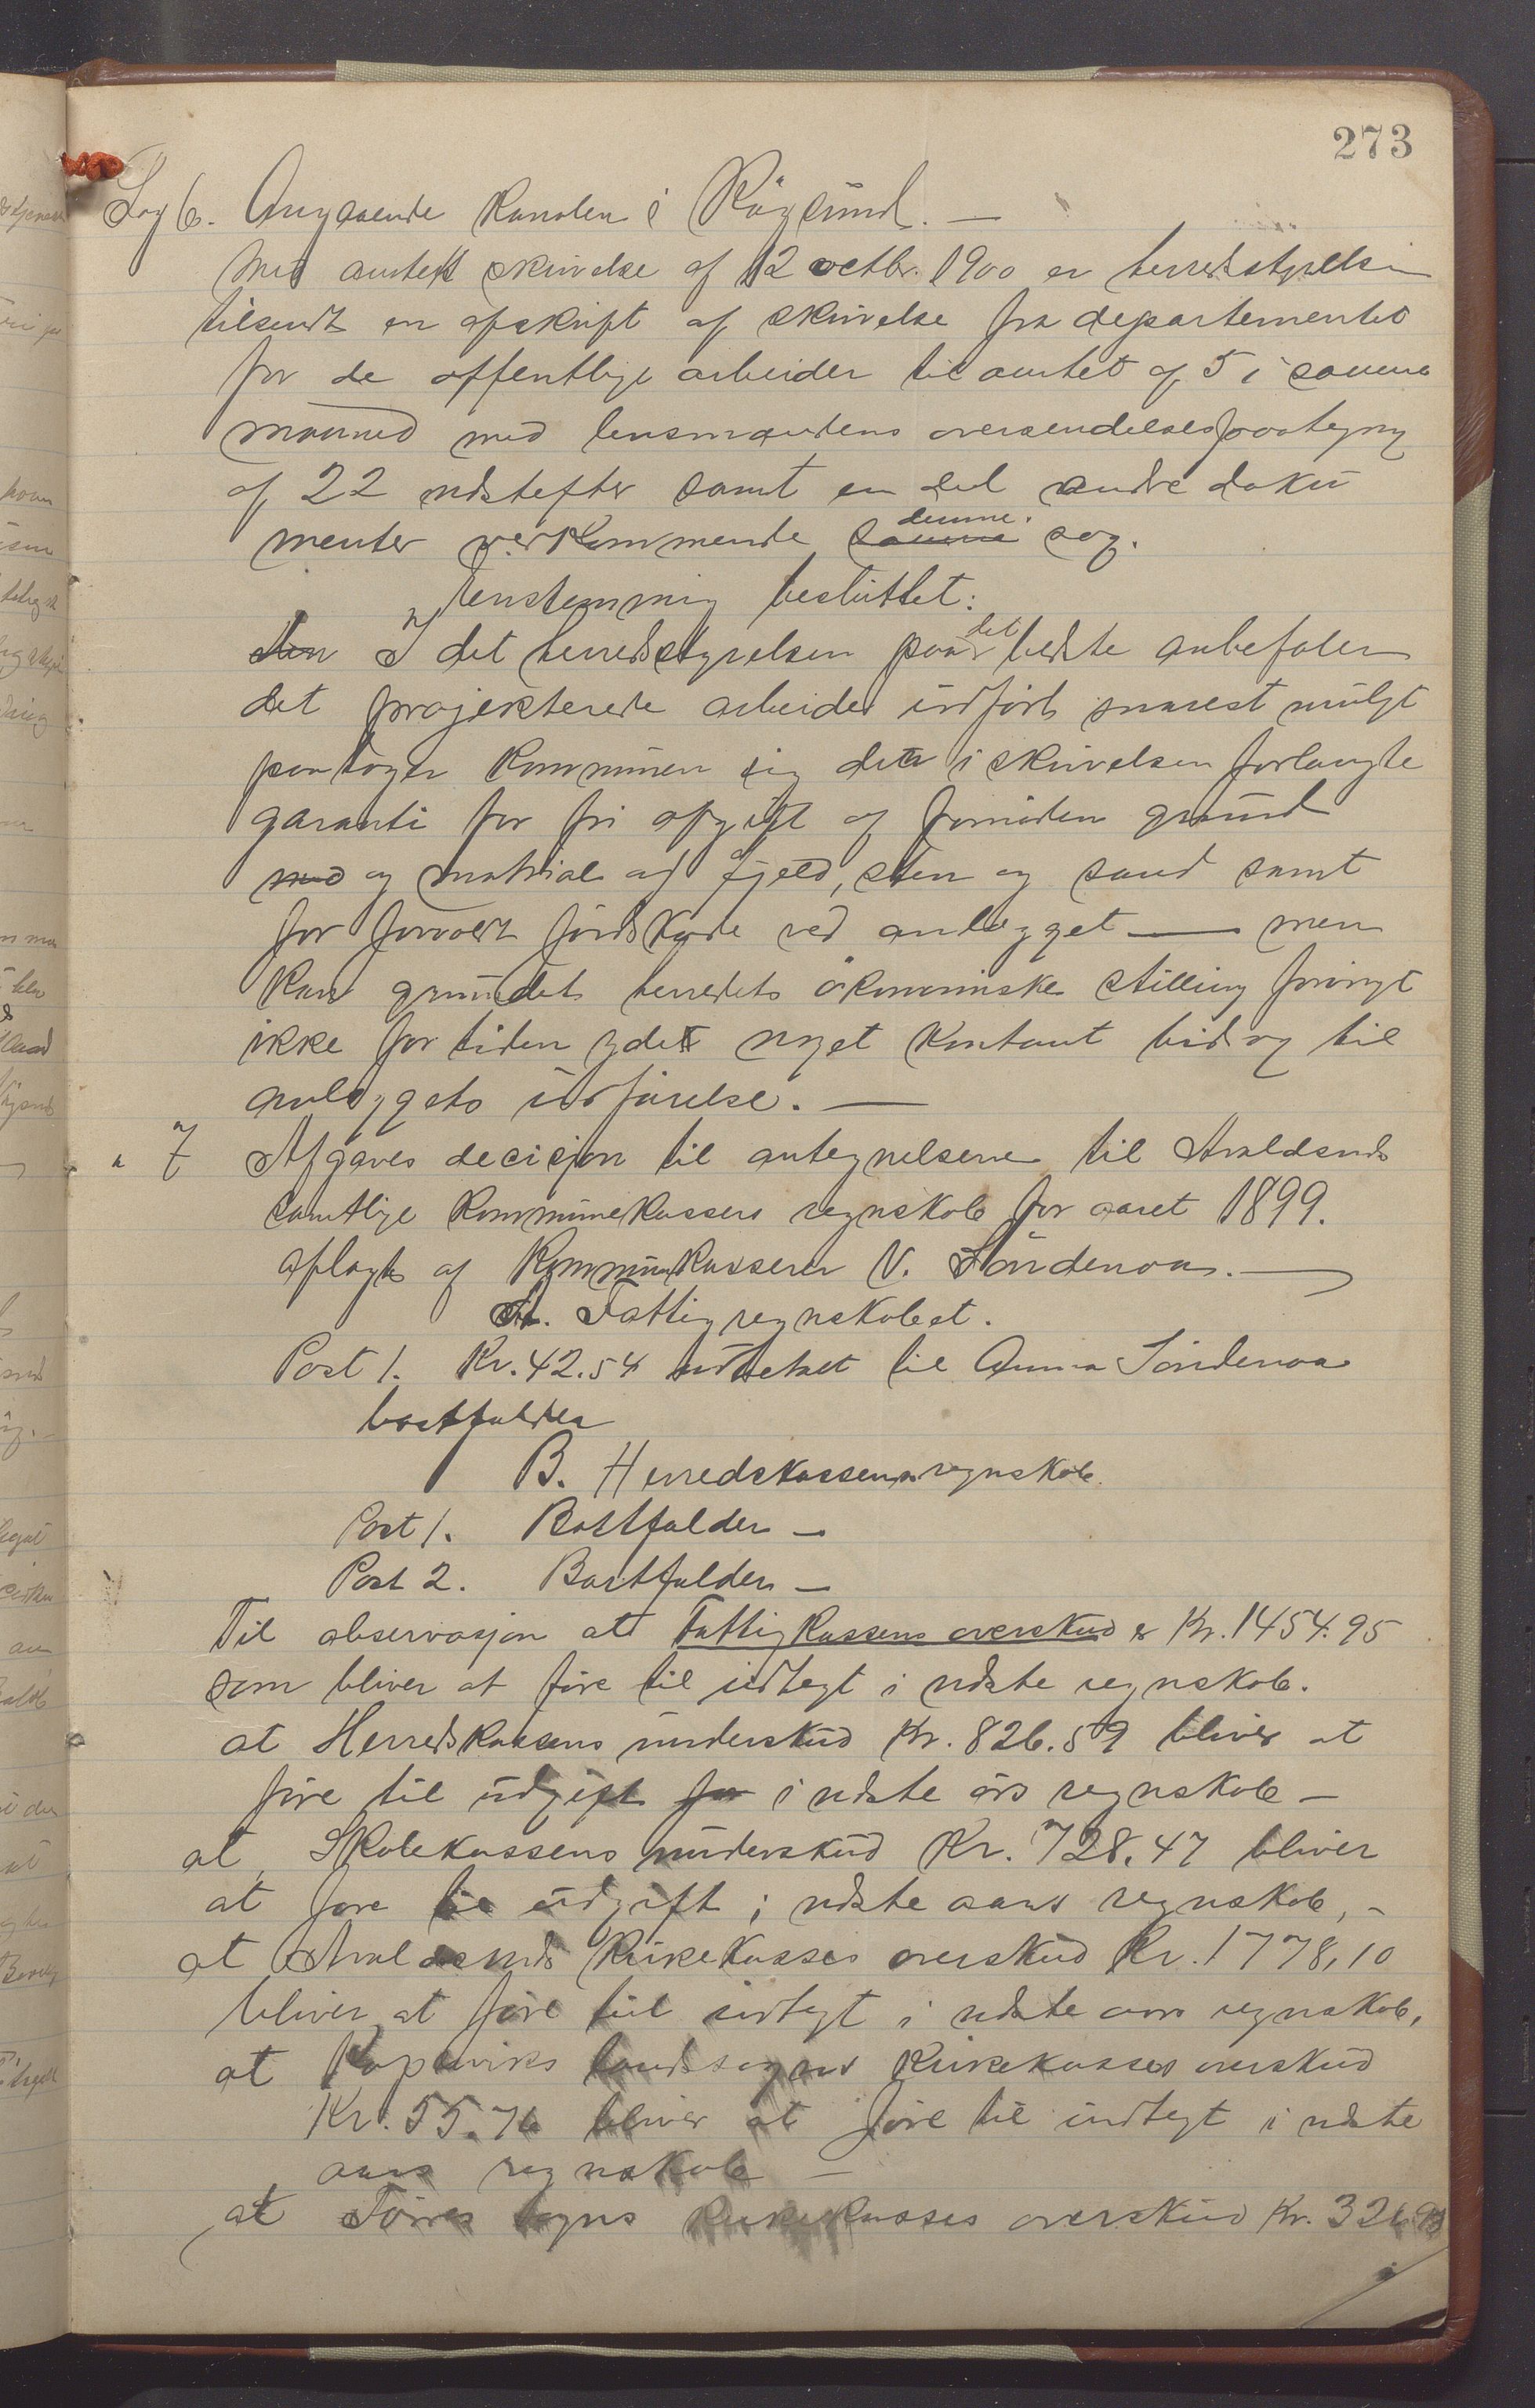 273
Sag 6. Angaaende kanalen i Røgsund. —
Med amtets skrivelse af 12 octbr. 1900 er herredstyrelsen
tilsendt en afskrift af skrivelse fra departementet
for de offentlige arbeider til amtet af 5 i samme
maaned med lensmandens oversendelsespaategn
af 22 ndstefter samt en del andre doku
menter vedkommende samme denne sag.
Enstemmig besluttet:
den I det herredstyrelsen paa det bedste anbefaler
det projekterede arbeide udført snarest muligt
paatager kommunen sig den i skrivelsen forlangte
garanti for fri afgift af fornøden grund
med og matrial af fjeld, sten og sand samt
for forvoldt jordskade ved anlægget — men
kan grundet herredets økonomiske stilling forøvrigt
ikke for tiden yde noget kontant bidrag til
anlæggets udførelse. —
" 7 Afgaves decisjon til antegnelserne til Avaldsnes
samtlige kommunekassers regnskab for aaret 1899.
aflagt af kommunekasserer N. Søndenaa. —
A. Fattigregnskabet.
Post 1. Kr. 42.54 udbetalt til Anna Søndenaa
bortfalder
B. Herredskassens regnskab.
Post 1. Bortfalder —
Post 2. Bortfalder —
Til observasjon at Fattigkassens overskud er Kr. 1454.95
som bliver at føre til indtægt i ndste regnskab.
at Herredskassens underskud Kr. 826.59 bliver at
føre til udgift for i ndste års regnskab —
at Skolekassens underskud Kr. 728.47 bliver
at føre til udgift i ndste aars regnskab, -
at Avaldsnes kirkekasses overskud Kr. 1778,10
bliver at føre til indtægt i ndste aars regnskab,
at Koperviks landsogns kirkekasses overskud
Kr. 55.76 bliver at føre til indtegt i ndste
aars regnskab —
at Torves sogns kirkekasses overskud Kr. 326.93